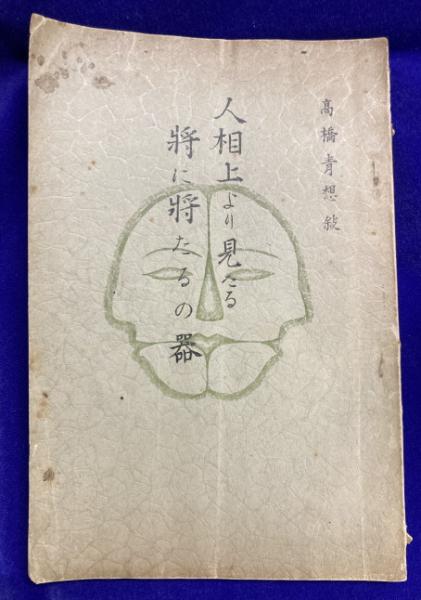 高橋青想敍
人相上より見たる
將に將たるの器